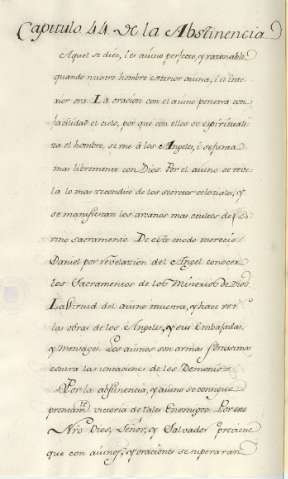 Capitulo 44. De la Abstinencia
Aquel se dice, i es aiuno perfecto, y razonable
quando nuestro hombre exterior aiuna, i el inte-
rior ora. La oracion con el aiuno penetra con
facilidad el cielo, por que con ellos se espirituali-
za el hombre, se une à los Angeles, i se forma
mas libremente con Dios. Por el aiuno se reve-
la lo mas recondito de los secretos celestiales, y
se manifiestan los arcanos mas ocultos del
vino sacramento. De este modo merecio
Daniel por revelacion del Angel conocer
los Sacramentos de los Misterios de Dios
La virtud del aiuno muestra, y hace ver
las obras de los Angeles, y sus Embajadas,
y Mensages. Los aiunos son armas fortissimas
contra las tentaciones de los Demonios.
Por la abstinencia, y aiuno se consigue
victoria de tales Enemigos. Por eso
Nro Dios, Señor, y Salvador previene
que con aiunos, y oraciones se superaran